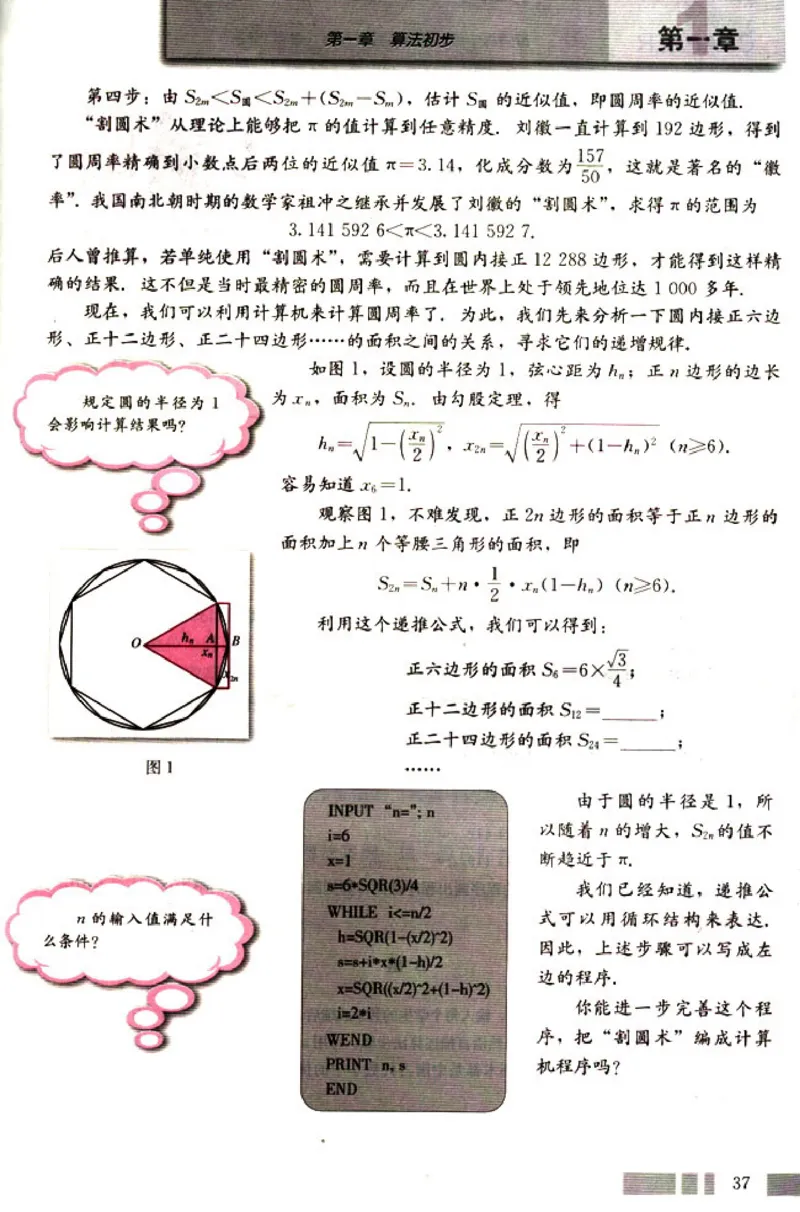 第一章 算法初步
第一章
第四步：由 S₂ₘ<S圆<S₂ₘ+(S₂ₘ−Sₘ)，估计 S圆 的近似值，即圆周率的近似值.
“割圆术”从理论上能够把 π 的值计算到任意精度. 刘徽一直计算到 192 边形，得到
了圆周率精确到小数点后两位的近似值 π=3.14，化成分数为 157/50，这就是著名的“徽
率”. 我国南北朝时期的数学家祖冲之继承并发展了刘徽的“割圆术”，求得 π 的范围为
3.141 592 6<π<3.141 592 7.
后人曾推算，若单纯使用“割圆术”，需要计算到圆内接正 12 288 边形，才能得到这样精
确的结果. 这不但是当时最精密的圆周率，而且在世界上处于领先地位达 1 000 多年.
现在，我们可以利用计算机来计算圆周率了. 为此，我们先来分析一下圆内接正六边
形、正十二边形、正二十四边形……的面积之间的关系，寻求它们的递增规律.
规定圆的半径为 1
会影响计算结果吗?
如图 1，设圆的半径为 1，弦心距为 hₙ；正 n 边形的边长
为 xₙ，面积为 Sₙ. 由勾股定理，得
hₙ=√(1−(xₙ/2)²)，x₂ₙ=√((xₙ/2)²+(1−hₙ)²) (n≥6).
容易知道 x₆=1.
观察图 1，不难发现，正 2n 边形的面积等于正 n 边形的
面积加上 n 个等腰三角形的面积，即
S₂ₙ=Sₙ+n·1/2·xₙ(1−hₙ) (n≥6).
利用这个递推公式，我们可以得到：
正六边形的面积 S₆=6×√3/4；
正十二边形的面积 S₁₂=______；
正二十四边形的面积 S₂₄=______；
……
O hₙ A B
xₙ
x₂ₙ
图 1
INPUT “n=”; n
i=6
x=1
s=6*SQR(3)/4
WHILE i<=n/2
h=SQR(1-(x/2)^2)
s=s+i*x*(1-h)/2
x=SQR((x/2)^2+(1-h)^2)
i=2*i
WEND
PRINT n, s
END
由于圆的半径是 1，所
以随着 n 的增大，S₂ₙ的值不
断趋近于 π.
我们已经知道，递推公
式可以用循环结构来表达.
因此，上述步骤可以写成左
边的程序.
你能进一步完善这个程
序，把“割圆术”编成计算
机程序吗?
n 的输入值满足什
么条件?
37